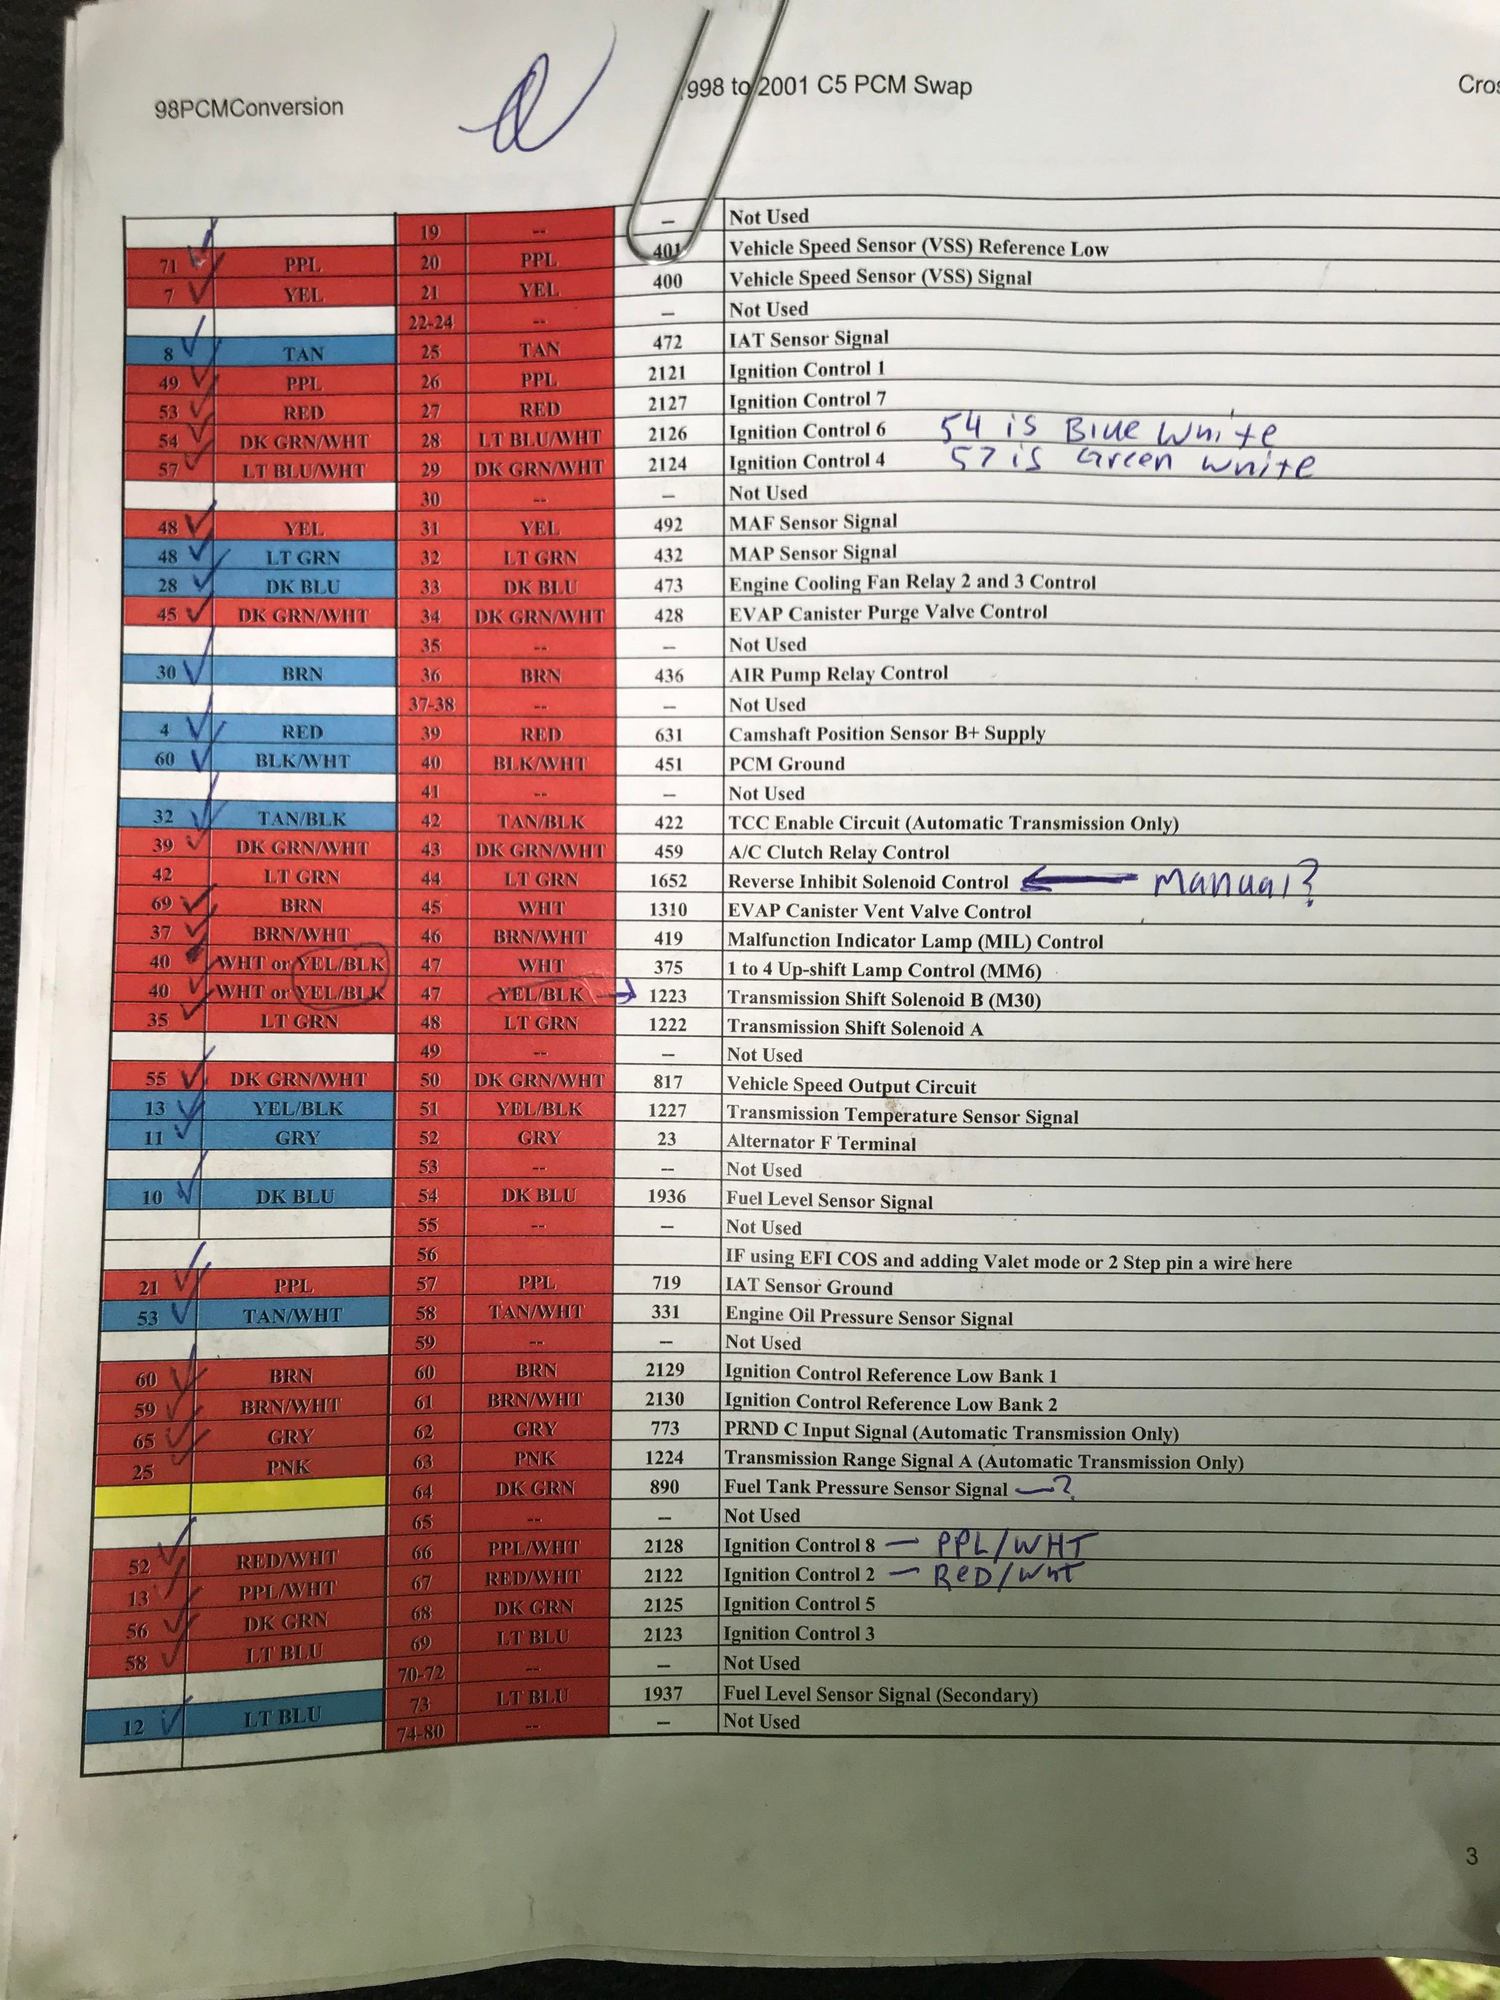 98PCMConversion
1998 to 2001 C5 PCM Swap
Cros
19 -- — Not Used
71 PPL 20 PPL 401 Vehicle Speed Sensor (VSS) Reference Low
7 YEL 21 YEL 400 Vehicle Speed Sensor (VSS) Signal
22-24 -- — Not Used
8 TAN 25 TAN 472 IAT Sensor Signal
49 PPL 26 PPL 2121 Ignition Control 1
53 RED 27 RED 2127 Ignition Control 7
54 DK GRN/WHT 28 LT BLU/WHT 2126 Ignition Control 6 54 is Blue White
57 LT BLU/WHT 29 DK GRN/WHT 2124 Ignition Control 4 57 is Green white
30 -- — Not Used
48 YEL 31 YEL 492 MAF Sensor Signal
48 LT GRN 32 LT GRN 432 MAP Sensor Signal
28 DK BLU 33 DK BLU 473 Engine Cooling Fan Relay 2 and 3 Control
45 DK GRN/WHT 34 DK GRN/WHT 428 EVAP Canister Purge Valve Control
35 -- — Not Used
30 BRN 36 BRN 436 AIR Pump Relay Control
37-38 -- — Not Used
4 RED 39 RED 631 Camshaft Position Sensor B+ Supply
60 BLK/WHT 40 BLK/WHT 451 PCM Ground
41 -- — Not Used
32 TAN/BLK 42 TAN/BLK 422 TCC Enable Circuit (Automatic Transmission Only)
39 DK GRN/WHT 43 DK GRN/WHT 459 A/C Clutch Relay Control
42 LT GRN 44 LT GRN 1652 Reverse Inhibit Solenoid Control manual?
69 BRN 45 WHT 1310 EVAP Canister Vent Valve Control
37 BRN/WHT 46 BRN/WHT 419 Malfunction Indicator Lamp (MIL) Control
40 WHT or YEL/BLK 47 WHT 375 1 to 4 Up-shift Lamp Control (MM6)
40 WHT or YEL/BLK 47 YEL/BLK 1223 Transmission Shift Solenoid B (M30)
35 LT GRN 48 LT GRN 1222 Transmission Shift Solenoid A
49 -- — Not Used
55 DK GRN/WHT 50 DK GRN/WHT 817 Vehicle Speed Output Circuit
13 YEL/BLK 51 YEL/BLK 1227 Transmission Temperature Sensor Signal
11 GRY 52 GRY 23 Alternator F Terminal
53 -- — Not Used
10 DK BLU 54 DK BLU 1936 Fuel Level Sensor Signal
55 -- — Not Used
56 IF using EFI COS and adding Valet mode or 2 Step pin a wire here
21 PPL 57 PPL 719 IAT Sensor Ground
53 TAN/WHT 58 TAN/WHT 331 Engine Oil Pressure Sensor Signal
59 -- — Not Used
60 BRN 60 BRN 2129 Ignition Control Reference Low Bank 1
59 BRN/WHT 61 BRN/WHT 2130 Ignition Control Reference Low Bank 2
65 GRY 62 GRY 773 PRND C Input Signal (Automatic Transmission Only)
25 PNK 63 PNK 1224 Transmission Range Signal A (Automatic Transmission Only)
64 DK GRN 890 Fuel Tank Pressure Sensor Signal — ?
65 -- — Not Used
52 RED/WHT 66 PPL/WHT 2128 Ignition Control 8 — PPL/WHT
13 PPL/WHT 67 RED/WHT 2122 Ignition Control 2 — RED/WHT
56 DK GRN 68 DK GRN 2125 Ignition Control 5
58 LT BLU 69 LT BLU 2123 Ignition Control 3
70-72 -- — Not Used
12 LT BLU 73 LT BLU 1937 Fuel Level Sensor Signal (Secondary)
74-80 -- — Not Used
3